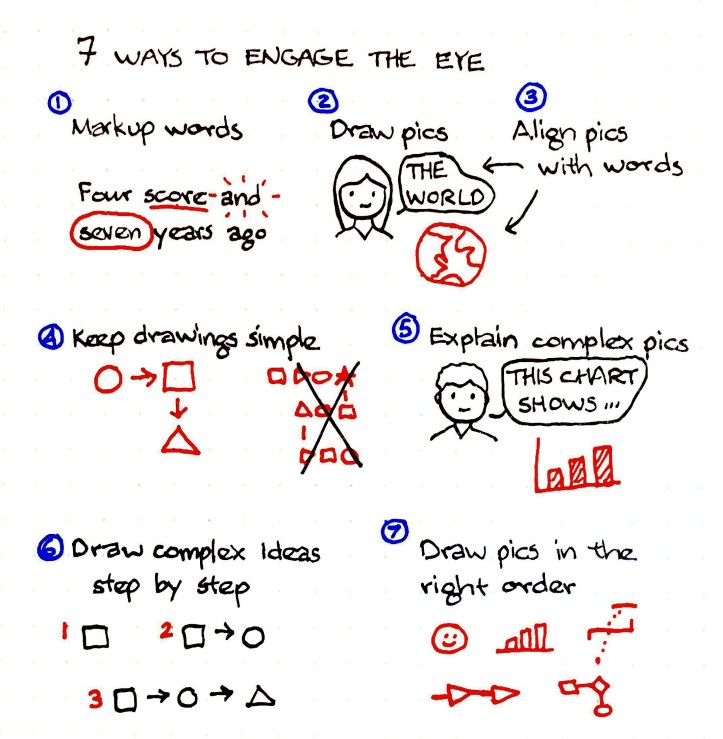 7 WAYS TO ENGAGE THE EYE
1
Markup words
Four score and
seven years ago
2
Draw pics
THE
WORLD
3
Align pics
with words
4 Keep drawings simple
5 Explain complex pics
THIS CHART
SHOWS ...
6 Draw complex Ideas
step by step
1 2
3
7
Draw pics in the
right order